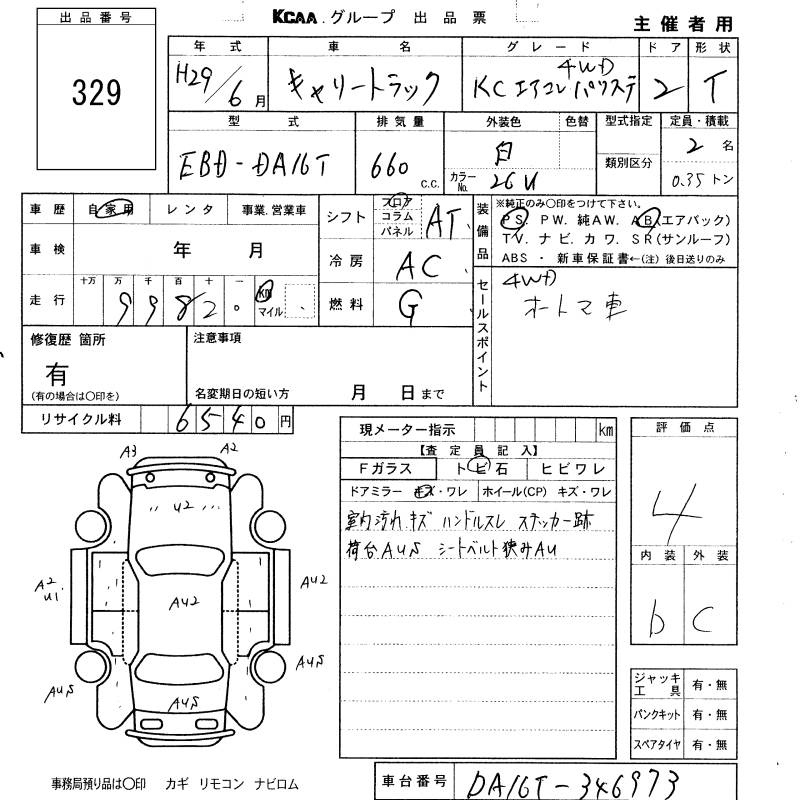 出品番号
329
KCAA.グループ 出品票
主催者用
年式 車名 グレード ドア 形状
H29/6月 キャリートラック 4WD KCエアコンパワステ 2 T
型式 排気量 外装色 色替 型式指定 定員・積載
EBD-DA16T 660 c.c. 白 類別区分 2名
カラーNo. 26U 0.35トン
車歴 自家用 レンタ 事業.営業車
シフト フロア コラム パネル AT
装備品 ※純正のみ〇印をつけて下さい。
PS. PW. 純AW. AB(エアバック)
TV. ナビ. カワ. SR(サンルーフ)
ABS ・ 新車保証書←(注) 後日送りのみ
車検 年 月
冷房 AC
走行 十万 万 千 百 十 一 km マイル
99820
燃料 G
セールスポイント
4WD
オートマ車
修復歴 箇所
有
(有の場合は〇印を)
注意事項
名変期日の短い方 月 日まで
リサイクル料 6540円
現メーター指示 km
【査定員記入】
Fガラス トビ石 ヒビワレ
ドアミラー キズ・ワレ ホイール(CP) キズ・ワレ
室内汚れ キズ ハンドルスレ ステッカー跡
荷台AUS シートベルト狭みAU
評価点
4
内装 外装
b C
A3 A2
U2
A2
U1.
AU2
AU2
AUS
AUS
AUS
ジャッキ工具 有・無
パンクキット 有・無
スペアタイヤ 有・無
事務局預り品は〇印 カギ リモコン ナビロム
車台番号 DA16T-346973